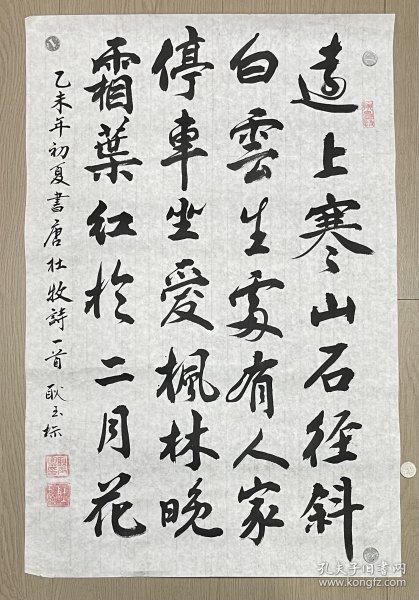 遠上寒山石徑斜
白雲生處有人家
停車坐愛楓林晚
霜葉紅於二月花
乙未年初夏書唐杜牧詩一首 耿玉標
孔夫子旧书网
www.kongfz.com